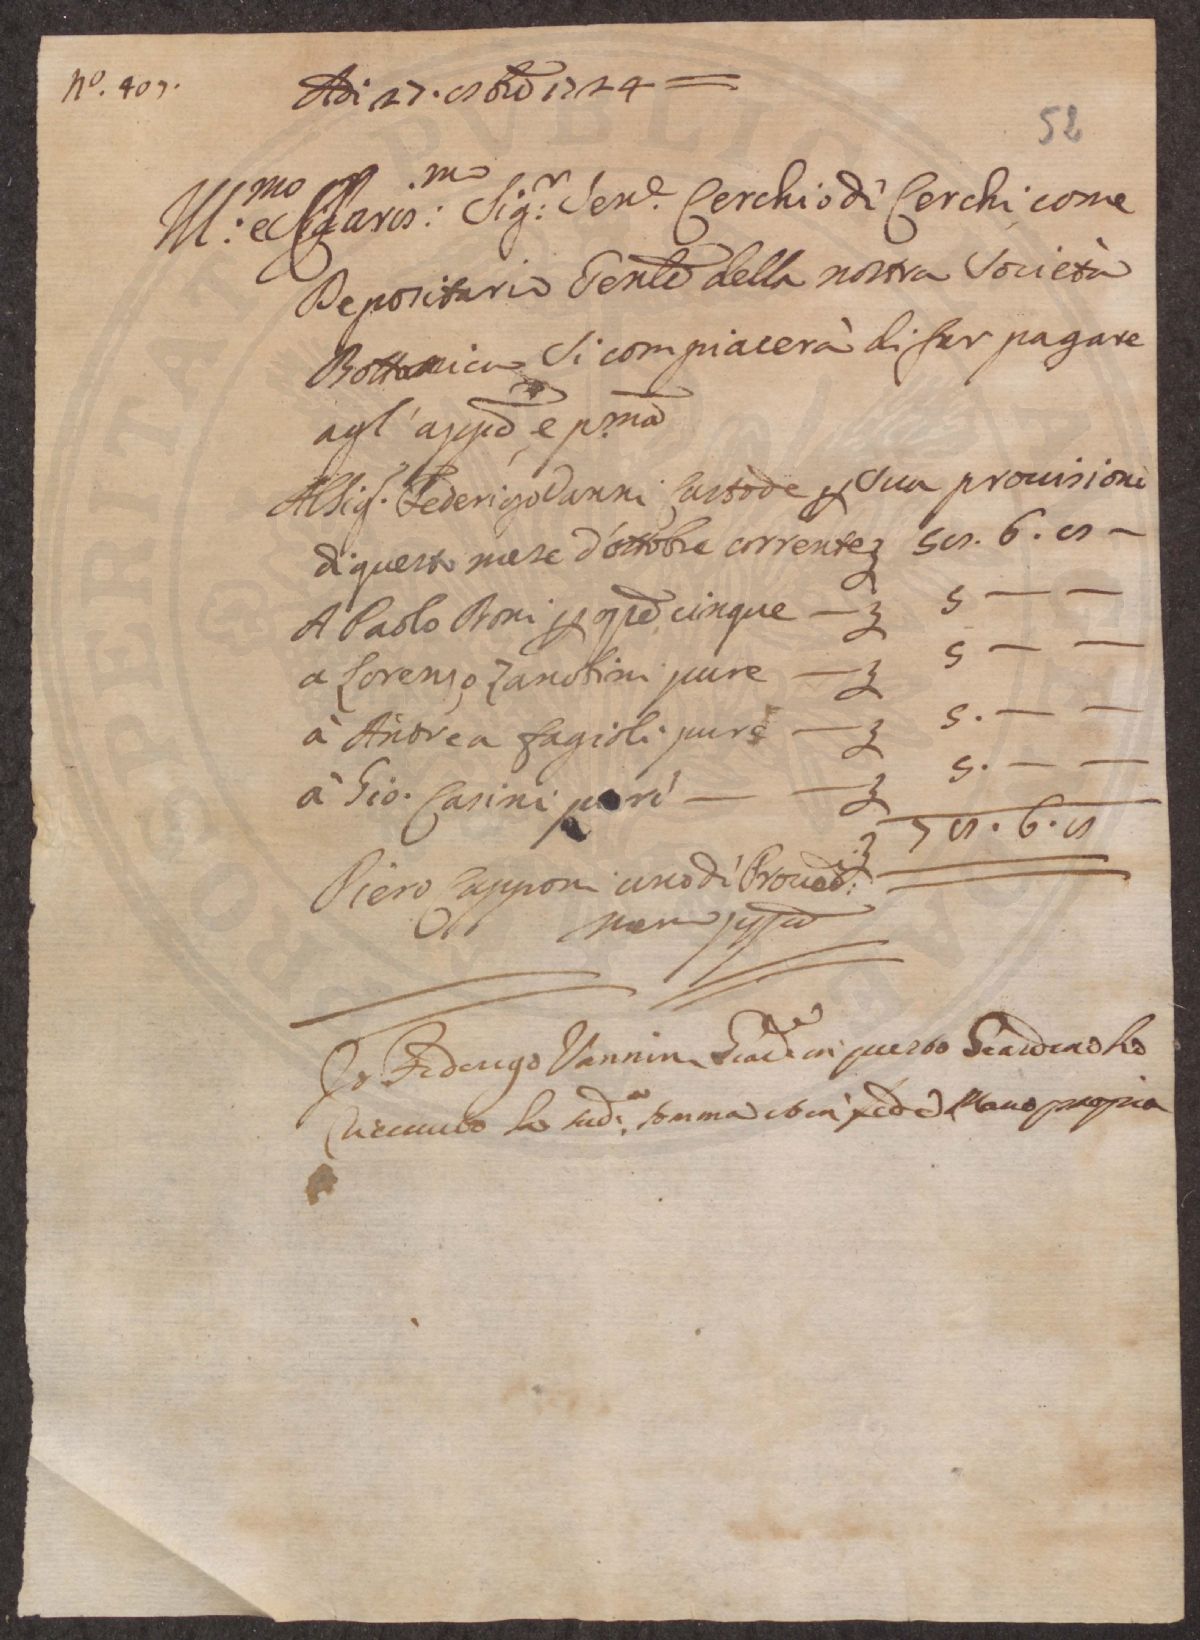 N.º 407.
Adi 27. 8bre 1724
52
Ill.mo e Claris.mo Sig.r Sen.e Cerchio di Cerchi come
Depositario Genle della nostra Società
Bottanica si compiacerà di far pagare
agl' appiè e p.ma
Al Sig.r Federigo Vanni Custode p sua prouisione
di questo mese d'ottobre corrente
A Paolo Boni p oppe cinque — 5 — —
a Lorenzo Zanobini pure — 5 — —
à Andrea Fagioli pure — 5. — —
à Gio. Casini pure — — 5. — —
Piero Capponi uno di Proued.
mano ppa
Io Federigo Vannini in questo Giardino ho
riceuuto la sud.a somma mano propria
PROSPERITATI PVBLICAE